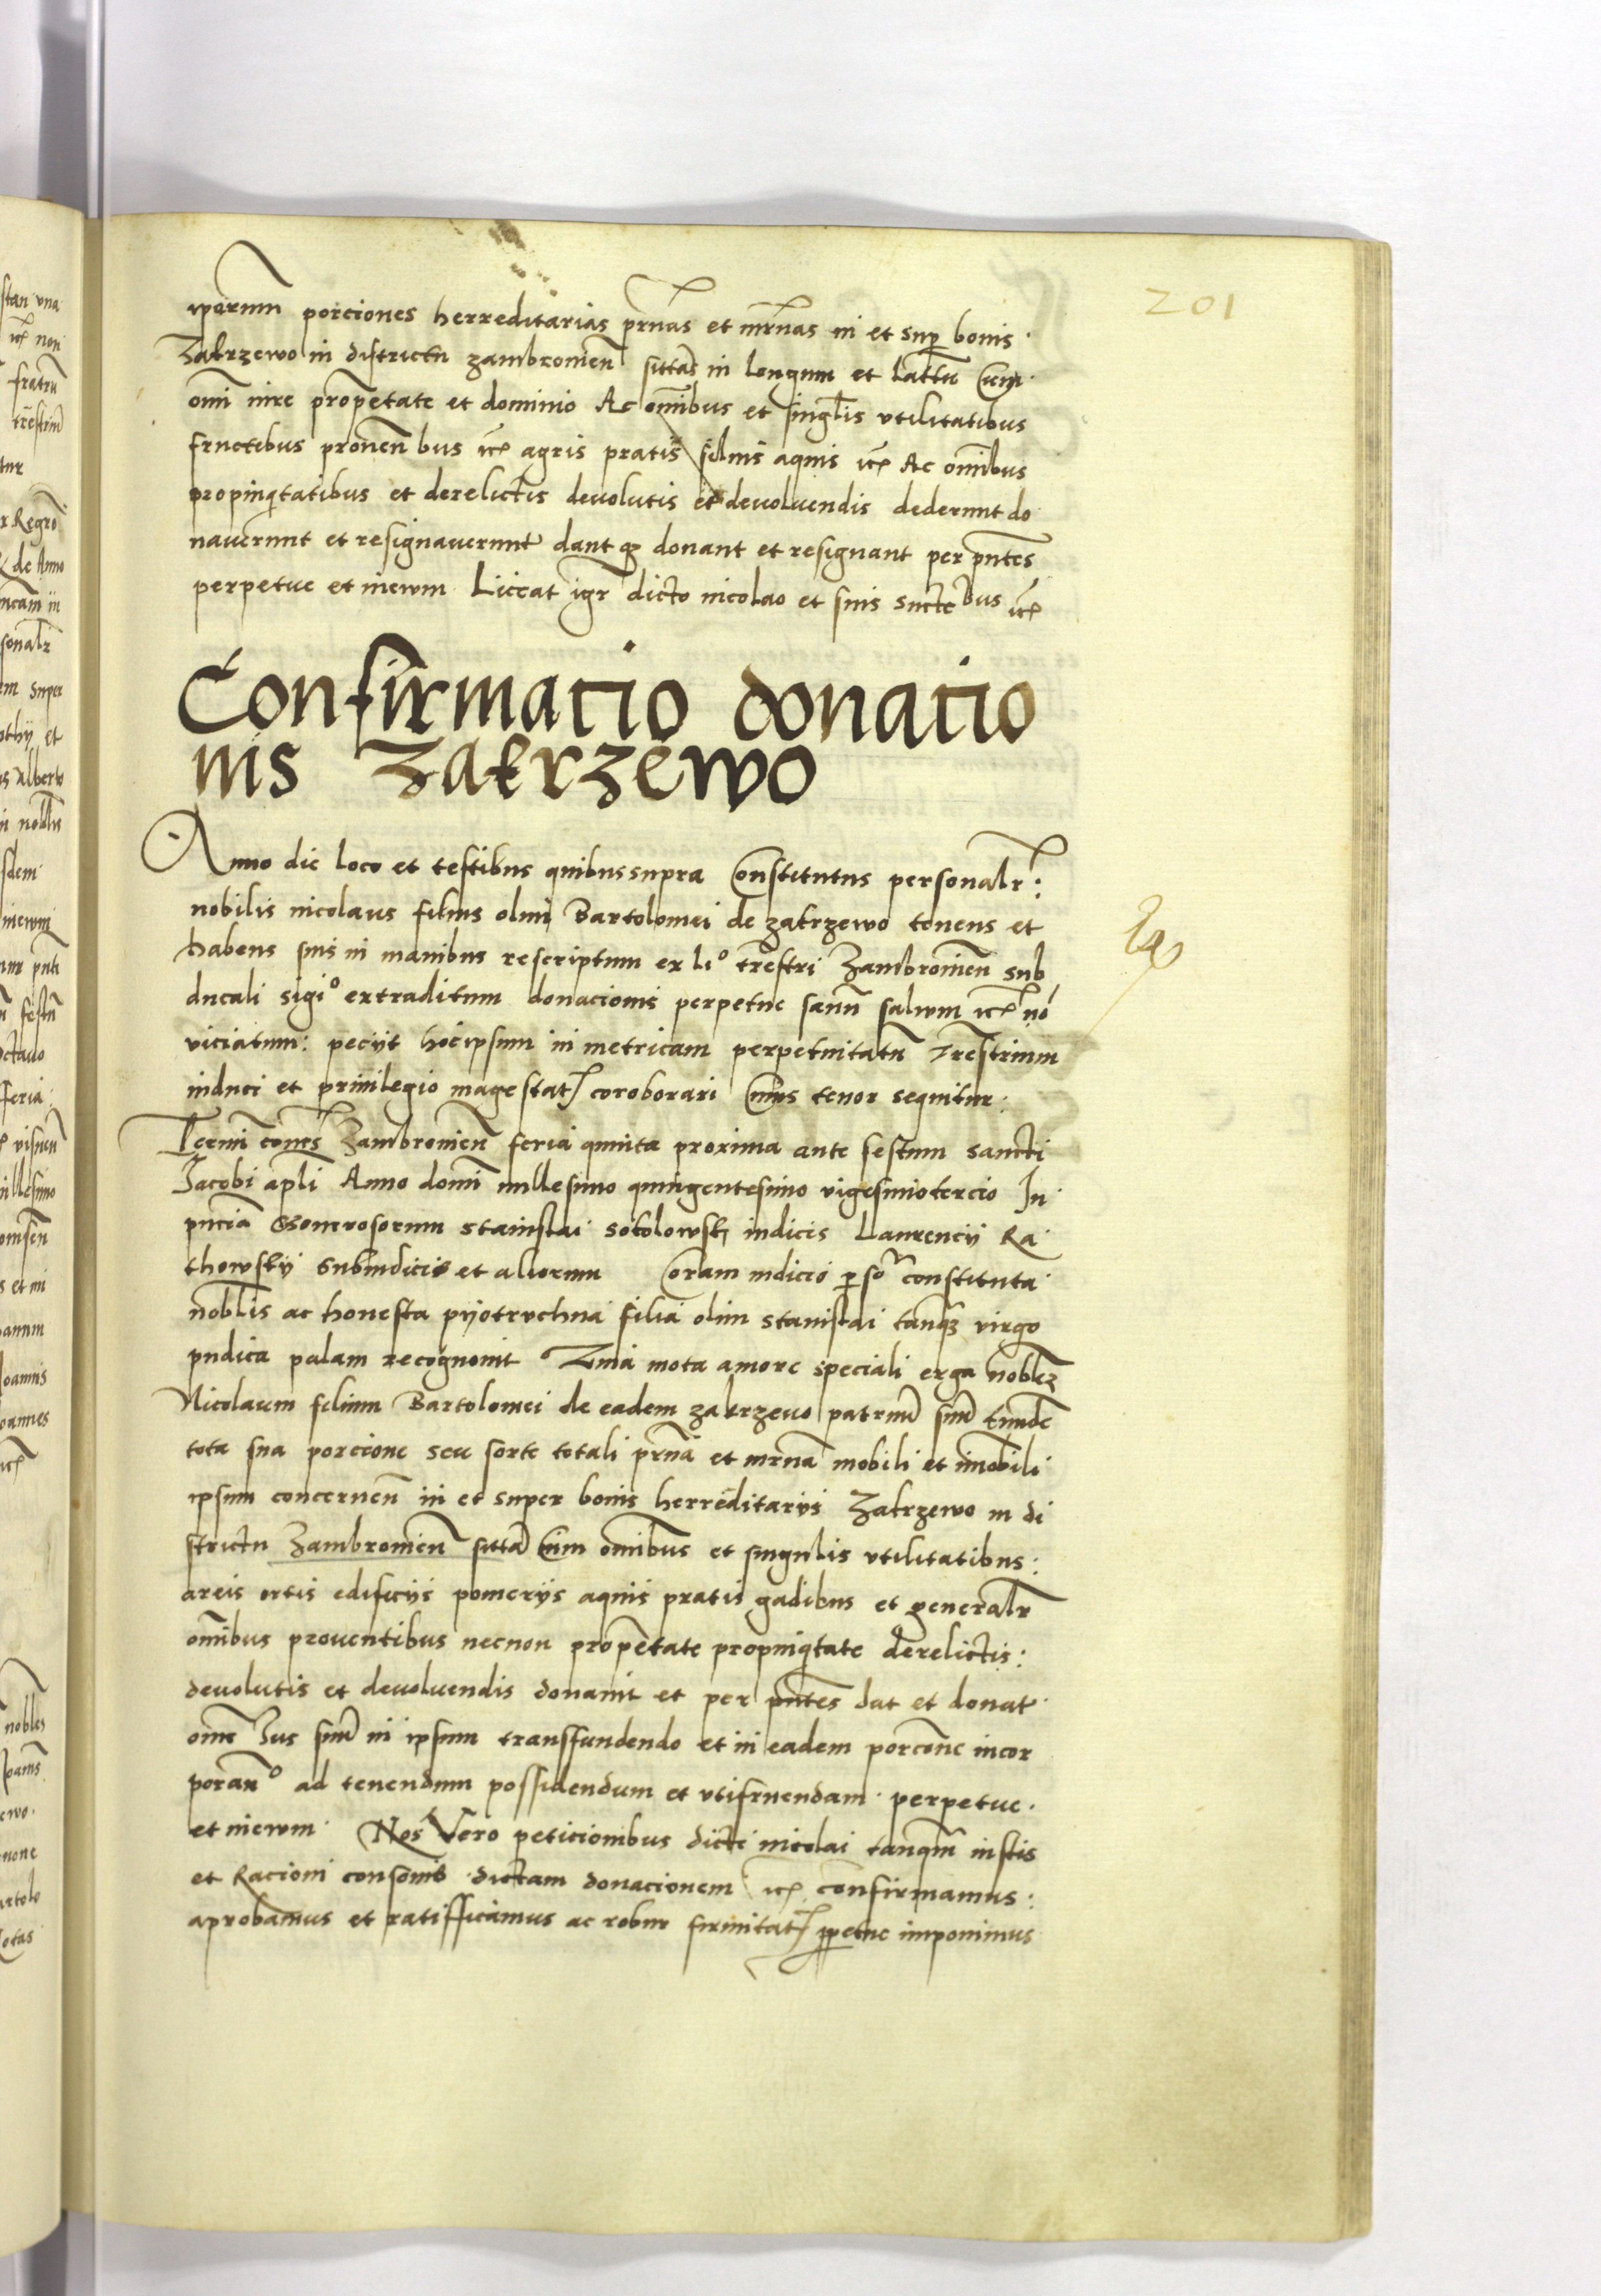 201
ipörum porciones herreditarias prnas et mrnas in et sup bonis.
Zakrzewo in districtu zambromen sittas in longum et lattu Cum.
omi iure propetate et dominio Ac omibus et singlis vtilitatibus
fructibus prouen bus etc agris pratis siluis aquis etc Ac omibus
propinqtatibus et derelictis deuolutis et deuoluendis dederunt do
nauerunt et resignauerunt dantq donant et resignant per pntes
perpetue et inewm Liceat igr dicto nicolao et suis succebus etc
Confirmacio donacio
nis Zakrzewo
Anno die loco et testibus quibussupra Constitutus personalr:
nobilis nicolaus filius olim Bartolomei de zakrzewo tenens et
habens suis in manibus rescriptum ex lio trestri Zambromien sub
ducali sigio extraditum donacionis perpetue sanu saluum etc no
viciatum: peciit hoc ipsum in metricam perpetuitatu Trestrium
induci et priuilegio magestat coroborari Cuius tenor sequitur:
Termi conis Zambromien feria quinta proxima ante festum sancti
Jacobi apli Anno domi millesimo quingentesimo vigesimotercio In
pncia Generosorum stanislai sokolowsky iudicis Laurencij Ra
thowskij Subiudicis et aliorum Coram iudicio pso constituta
noblis ac honesta pijotruchna filia olim stanislai tanq virgo
pudica palam recognouit Zma mota amore speciali erga noblez
Nicolaum filium Bartolomei de eadem zakrzeuo patruu suu Eunde
tota sua porcione seu sorte totali prna et mrna mobili et imobili
ipsum concernen in et super bonis herreditarijs Zakrzewo in di
strictu Zambromien sitta Cum omibus et singulis vtilitatibus:
areis ortis edificijs pomerijs aquis pratis gadibus et generalr
omibus prouentibus necnon propetate propinqtate derelictis:
deuolutis et deuoluendis donauit et per pntes dat et donat.
ome Jus suu in ipsum transfundendo et in eadem porcone incor
porano ad tenendum possidendum et vtifruendam. perpetue.
et inewm. Nos Vero peticionibus dicti nicolai tanqm iustis
et Racioni consonis dictam donacionem etc confirmamus:
aprobamus et ratifficamus ac robur firmitat ppetue imponimus